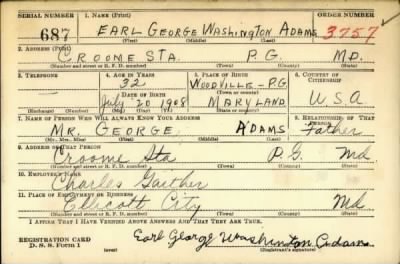 SERIAL NUMBER 1. NAME (Print) ORDER NUMBER
687 EARL GEORGE WASHINGTON ADAMS 3757
(First) (Middle) (Last)
2. ADDRESS (Print)
CROOME STA. P.G. MD.
(Number and street or R. F. D. number) (Town) (County) (State)
3. TELEPHONE 4. AGE IN YEARS 5. PLACE OF BIRTH 6. COUNTRY OF CITIZENSHIP
32 WOODVILLE - P.G.
DATE OF BIRTH (Town or county)
July 20 1908 MARYLAND U.S.A.
(Exchange) (Number) (Mo.) (Day) (Yr.) (State or country)
7. NAME OF PERSON WHO WILL ALWAYS KNOW YOUR ADDRESS 8. RELATIONSHIP OF THAT PERSON
MR. GEORGE ADAMS Father
(Mr., Mrs., Miss) (First) (Middle) (Last)
9. ADDRESS OF THAT PERSON
Croome Sta P.G. Md.
(Number and street or R. F. D. number) (Town) (County) (State)
10. EMPLOYER'S NAME
Charles Gaither
11. PLACE OF EMPLOYMENT OR BUSINESS
Ellicott City Md
(Number and street or R. F. D. number) (Town) (County) (State)
I AFFIRM THAT I HAVE VERIFIED ABOVE ANSWERS AND THAT THEY ARE TRUE.
REGISTRATION CARD Earl George Washinton Adams
D. S. S. Form 1 (over) (Signature)